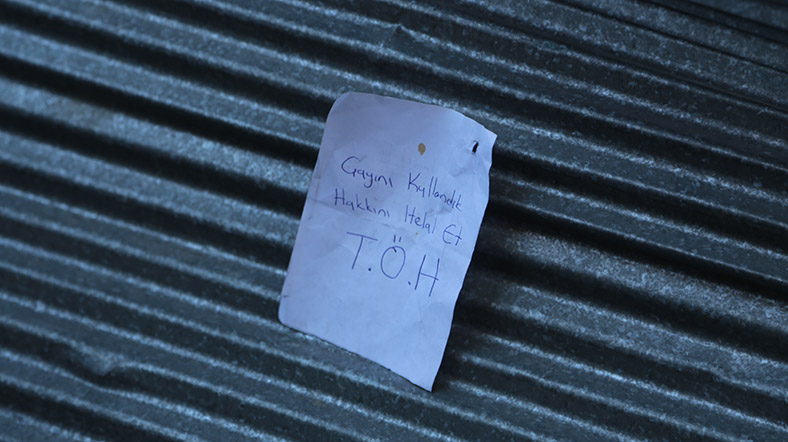 Çayını Kullandık
Hakkını Helal Et
T.Ö.H